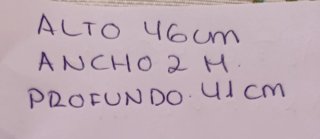 ALTO 46cm
ANCHO 2 M.
PROFUNDO. 41 cm